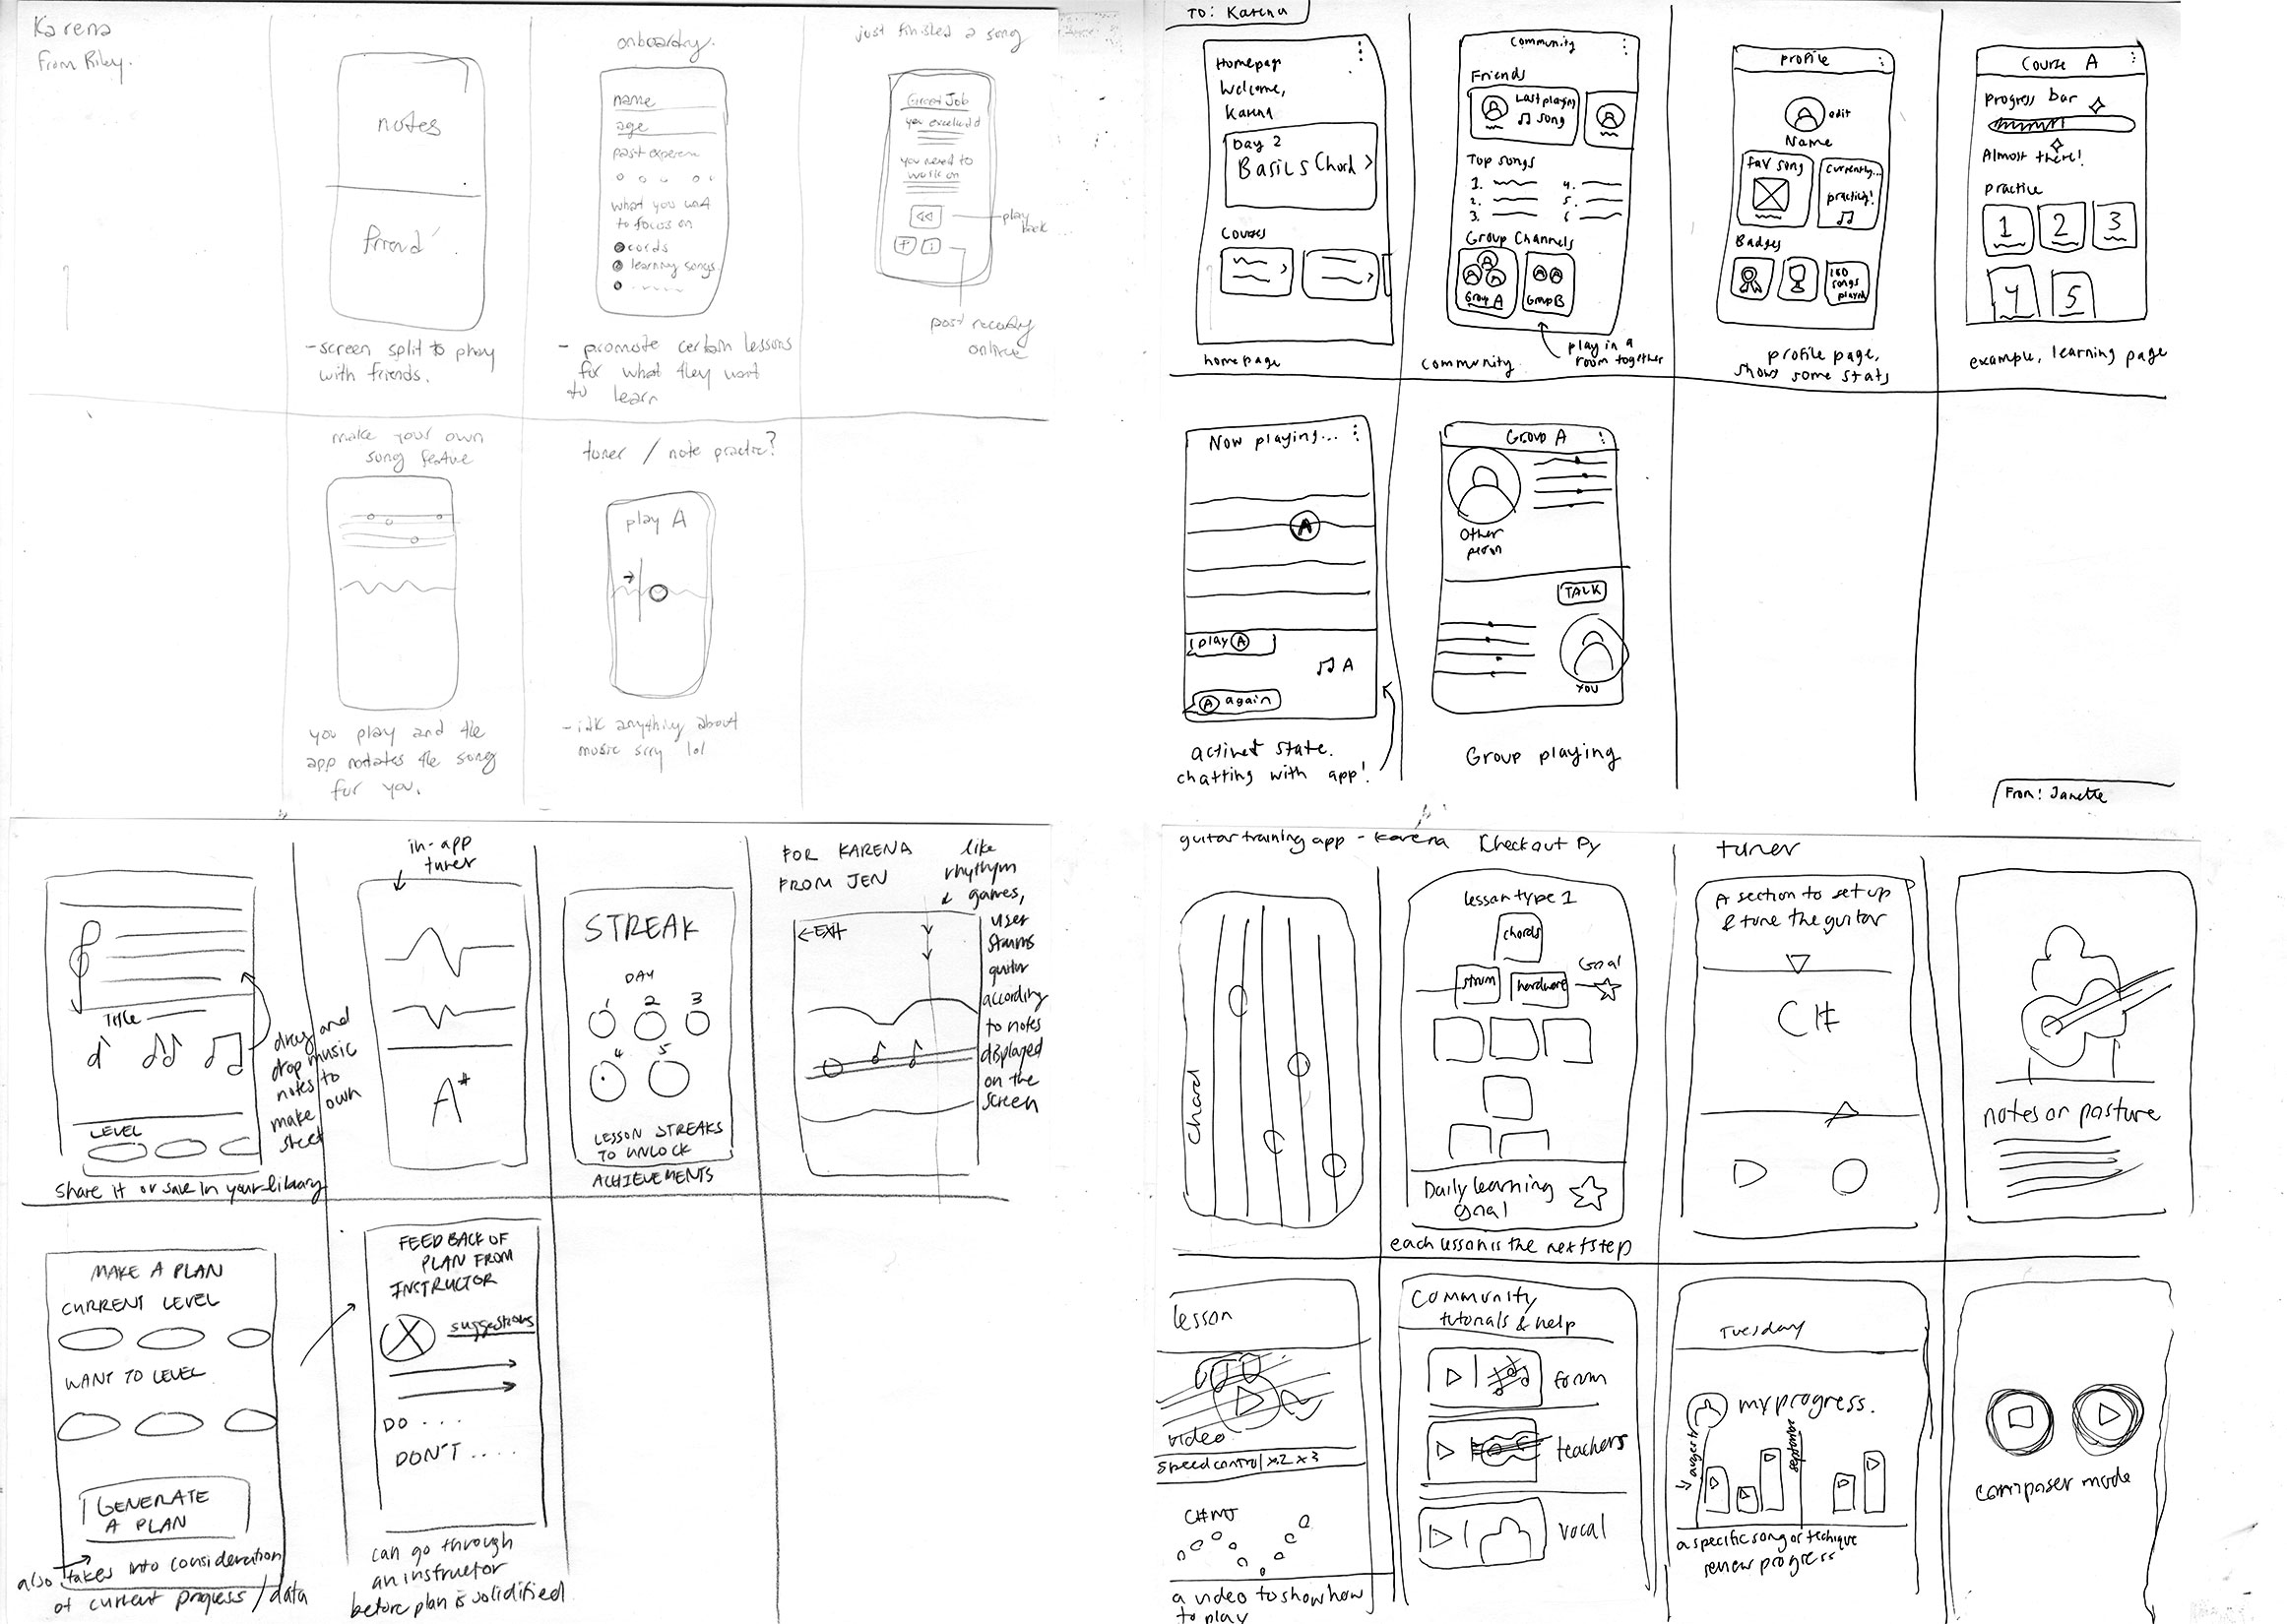 Karena
From Riley.
notes
friend
-screen split to play
with friends.
onboardng.
name
age
past experience
what you want
to focus on
cords
learning songs.
- promote certain lessons
for what they want
to learn
just finished a song
Great Job
you excelled
you need to
work on
play
back
post recording
online
make your own
song feature
you play and the
app notates the song
for you.
tuner / note practice?
play A
-idk anything about
music srry lol
TO: Karena
Homepage
Welcome,
Karena
Day 2
Basics Chord >
Courses
homepage
Community
Friends
Last playing
song
Top songs
1.
2.
3.
4.
5.
6
Group Channels
Group A
Group B
play in a
room together
community
Profile
edit
Name
fav song
Currently...
practicing!
Badges
100
songs
played
profile page,
shows some stats
Course A
Progress bar
Almost there!
Practice
1 2 3
4 5
example, learning page
Now playing...
A
play A
A
A again
active state.
chatting with app!
Group A
Other
person
TALK
YOU
Group playing
From: Janette
Title
drag and
drop music
notes to
make own
sheet
LEVEL
share it or save in your library
in-app
tuner
A#
STREAK
DAY
1 2 3
4 5
LESSON STREAKS
TO UNLOCK
ACHIEVEMENTS
FOR KARENA
FROM JEN
← EXIT
like
rhythym
games,
user
strums
guitar
according
to notes
displayed
on the
screen
MAKE A PLAN
CURRENT LEVEL
WANT TO LEVEL
GENERATE
A PLAN
also takes into consideration
of current progress / data
FEEDBACK OF
PLAN FROM
INSTRUCTOR
suggestions
DO ...
DON'T ....
can go through
an instructor
before plan is solidified.
guitar training app - Karena
Checkout Py
chord
lesson type 1
chords
strum
hardware
Goal
Daily learning
goal
each lesson is the next step
tuner
A section to set up
& tune the guitar
C#
notes or pasture
lesson
video
speed control x.2 x 3
a video to show how
to play
Community
tutorials & help
form
teachers
vocal
Tuesday
my progress.
august
september
a specific song or techique
review progress
composer mode